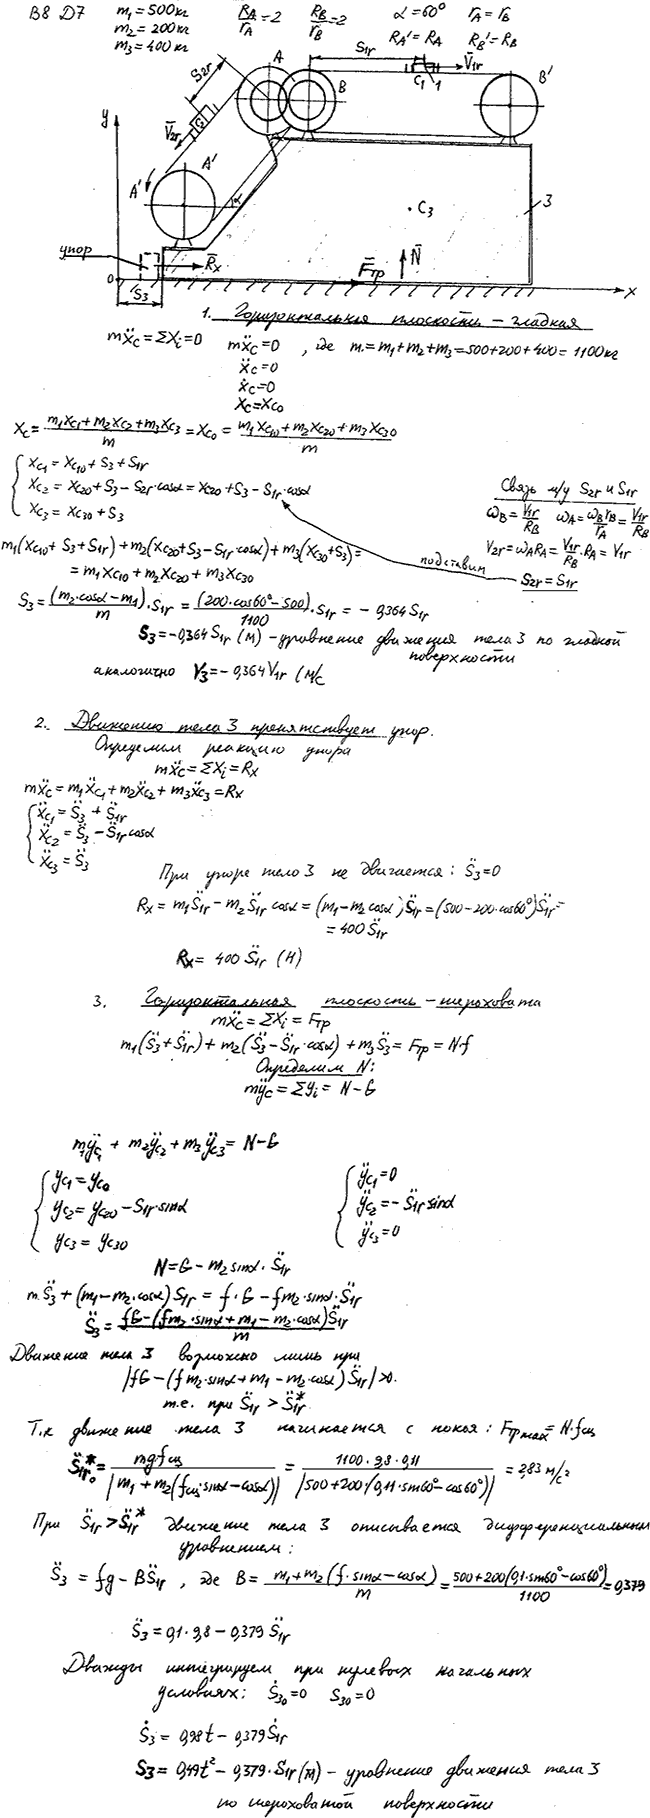 В8 Д7 m₁ = 500 кг R_A/r_A = 2 R_B/r_B = 2 α = 60° r_A = r_B
m₂ = 200 кг R_A' = R_A R_B' = R_B
m₃ = 400 кг
S₁r
A B C₁ 1 V̄₁r B'
S₂r
C₂ V̄₂r
y
A' A' α
C₃ 3
упор R̄x F̄тр N̄
0 S₃ x
1. Горизонтальная плоскость – гладкая
mẍ_C = ΣXᵢ = 0 mẍ_C = 0 , где m = m₁ + m₂ + m₃ = 500 + 200 + 400 = 1100 кг
ẍ_C = 0
ẋ_C = 0
x_C = x_C0
x_C = (m₁x_C1 + m₂x_C2 + m₃x_C3)/m = x_C0 = (m₁x_C10 + m₂x_C20 + m₃x_C30)/m
x_C1 = x_C10 + S₃ + S₁r
x_C2 = x_C20 + S₃ – S₂r·cosα = x_C20 + S₃ – S₁r·cosα
x_C3 = x_C30 + S₃
Связь м/у S₂r и S₁r
ω_B = V₁r/R_B ω_A = ω_B r_B/r_A = V₁r/R_B
V₂r = ω_A R_A = V₁r/R_B · R_A = V₁r
подставим S₂r = S₁r
m₁(x_C10 + S₃ + S₁r) + m₂(x_C20 + S₃ – S₁r cosα) + m₃(x_C30 + S₃) =
= m₁x_C10 + m₂x_C20 + m₃x_C30
S₃ = (m₂·cosα – m₁)/m · S₁r = (200·cos60° – 500)/1100 · S₁r = – 0,364 S₁r
S₃ = –0,364 S₁r (м) – уравнение движения тела 3 по гладкой
поверхности
аналогично V₃ = – 0,364 V₁r (м/с
2. Движению тела 3 препятствует упор.
Определим реакцию упора
mẍ_C = ΣXᵢ = Rx
mẍ_C = m₁ẍ_C1 + m₂ẍ_C2 + m₃ẍ_C3 = Rx
ẍ_C1 = S̈₃ + S̈₁r
ẍ_C2 = S̈₃ – S̈₁r cosα
ẍ_C3 = S̈₃
При упоре тело 3 не двигается: S̈₃ = 0
Rx = m₁S̈₁r – m₂S̈₁r cosα = (m₁ – m₂cosα)S̈₁r = (500 – 200·cos60°)S̈₁r =
= 400 S̈₁r
Rx = 400 S̈₁r (Н)
3. Горизонтальная плоскость – шероховата
mẍ_C = ΣXᵢ = Fтр
m₁(S̈₃ + S̈₁r) + m₂(S̈₃ – S̈₁r·cosα) + m₃S̈₃ = Fтр = N·f
Определим N:
mÿ_C = Σyᵢ = N – G
m₁ÿ_C1 + m₂ÿ_C2 + m₃ÿ_C3 = N – G
y_C1 = y_C0 ÿ_C1 = 0
y_C2 = y_C20 – S₁r·sinα ÿ_C2 = – S̈₁r sinα
y_C3 = y_C30 ÿ_C3 = 0
N = G – m₂ sinα · S̈₁r
m·S̈₃ + (m₁ – m₂·cosα) S₁r = f·G – fm₂·sinα·S̈₁r
S̈₃ = (fG – (fm₂·sinα + m₁ – m₂·cosα)S̈₁r)/m
Движение тела 3 возможно лишь при
|fG – (fm₂·sinα + m₁ – m₂·cosα) S̈₁r| > 0.
т.е. при S̈₁r > S̈₁r*
Т.к движение тела 3 начинается с покоя: Fтр max = N·fсц
S̈₁r₀* = mg·fсц/|m₁ + m₂(fсц·sinα – cosα)| = 1100·9,8·0,11/|500 + 200·(0,11·sin60° – cos60°)| = 2,83 м/с²
При S̈₁r > S̈₁r* движение тела 3 описывается дифференциальным
уравнением:
S̈₃ = fg – BS̈₁r , где B = (m₁ + m₂(f·sinα – cosα))/m = (500 + 200(0,1·sin60° – cos60°))/1100 = 0,379
S̈₃ = 0,1·9,8 – 0,379 S̈₁r
Дважды интегрируем при нулевых начальных
условиях: Ṡ₃₀ = 0 S₃₀ = 0
Ṡ₃ = 0,98t – 0,379Ṡ₁r
S₃ = 0,49t² – 0,379·S₁r (м) – уравнение движения тела 3
по шероховатой поверхности